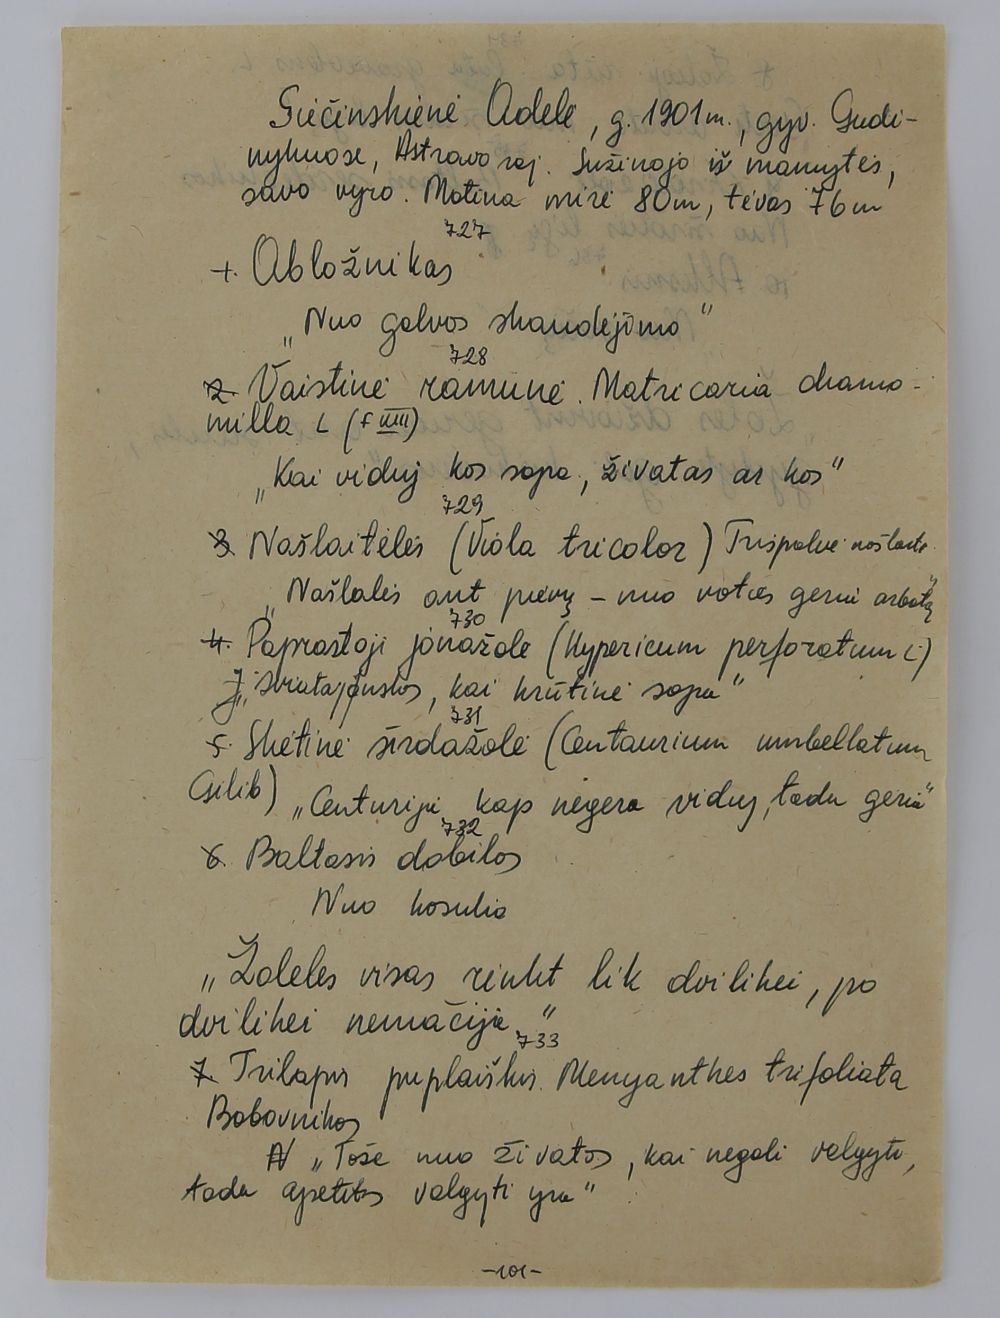 Giečinskienė Adelė, g. 1901 m., gyv. Gudi-
nykuose, Astravo raj. Sužinojo iš mamytės,
savo vyro. Motina mirė 80 m, tėvas 76 m
727
1. Abložnikas
„Nuo galvos skaudėjimo"
728
2. Vaistinė ramunė. Matricaria chamo-
milla L (f VIII)
„Kai viduj kos sopa, živatas ar kos"
729
3. Našlaitėlės (Viola tricolor) Trispalvė našlaitė
„Našlalės ant pievų – nuo voties geria arbatą"
730
4. Paprastoji jonažolė (Hypericum perforatum L)
„Svintajonskos, kai krūtinė sopa"
731
5. Skėtinė širdažolė (Centaurium umbellatum
Gilib) „Centurija kap negera viduj, tada geria"
732
6. Baltasis dobilas
Nuo kosulio
„Žoleles visas rinkt lik dvilikei, po
dvilikei nemačija"
733
7. Trilapis puplaiškis. Menyanthes trifoliata
Bobovnikas
„Toše nuo živatos, kai negali valgyti,
tada apetitas valgyti yra"
-101-